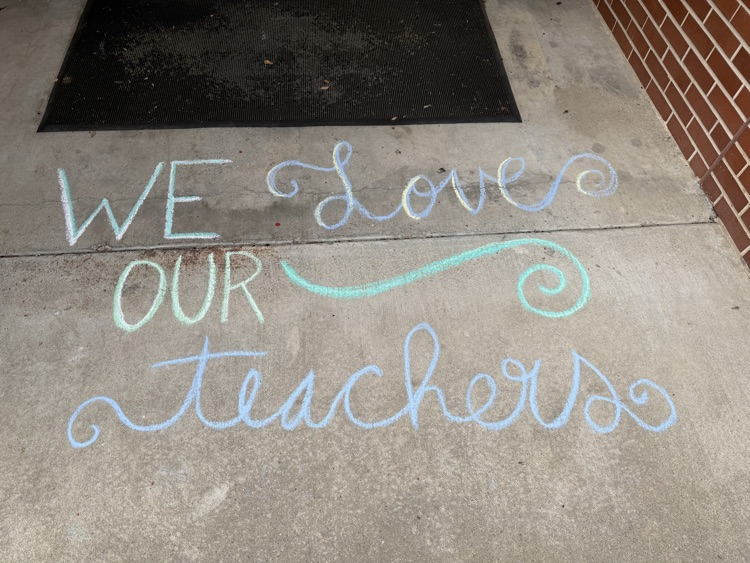 WE Love
OUR
teachers